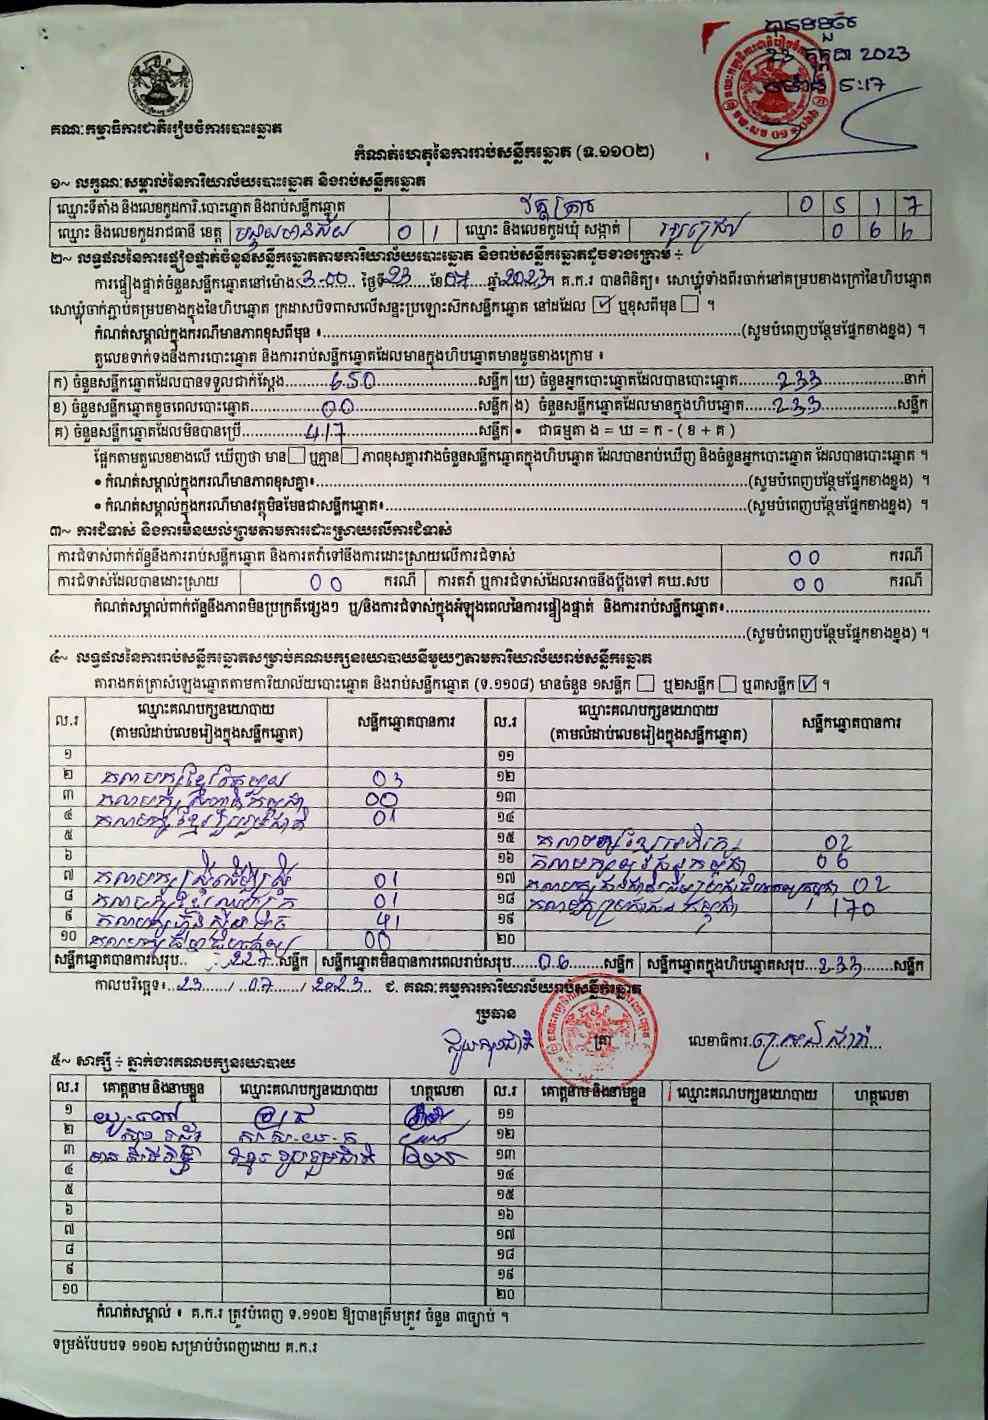 បានមមួចរ
23 កក្កដា 2023
ម៉ោង ៥:17
គណៈកម្មាធិការជាតិរៀបចំការបោះឆ្នោត
កំណត់ហេតុនៃការរាប់សន្លឹកឆ្នោត (ទ.១១០២)
១~ លក្ខណៈសម្គាល់នៃការិយាល័យបោះឆ្នោត និងរាប់សន្លឹកឆ្នោត
ឈ្មោះទីតាំង និងលេខកូដការិ.បោះឆ្នោត និងរាប់សន្លឹកឆ្នោត 0 5 1 7
ឈ្មោះ និងលេខកូដរាជធានី ខេត្ត បន្ទាយមានជ័យ 0 1 ឈ្មោះ និងលេខកូដឃុំ សង្កាត់ 0 6 6
២~ លទ្ធផលនៃការផ្ទៀងផ្ទាត់ចំនួនសន្លឹកឆ្នោតតាមការិយាល័យបោះឆ្នោត និងរាប់សន្លឹកឆ្នោតដូចខាងក្រោម ÷
ការផ្ទៀងផ្ទាត់ចំនួនសន្លឹកឆ្នោតនៅម៉ោង 3-00 ថ្ងៃទី 23 ខែ 07 ឆ្នាំ 2023 ។ គ.ក.រ បានពិនិត្យ៖ សោឃ្លុំទាំងពីរចាក់នៅគម្របខាងក្រៅនៃហិបឆ្នោត
សោឃ្លុំចាក់ភ្ជាប់គម្របខាងក្នុងនៃហិបឆ្នោត ក្រដាសបិទពាសលើសន្ទះប្រឡោះសិកសន្លឹកឆ្នោត នៅដដែល ☑ ឬខុសពីមុន ☐ ។
កំណត់សម្គាល់ក្នុងករណីមានភាពខុសពីមុន ៖ (សូមបំពេញបន្ថែមផ្នែកខាងខ្នង) ។
តួលេខទាក់ទងនឹងការបោះឆ្នោត និងការរាប់សន្លឹកឆ្នោតដែលមានក្នុងហិបឆ្នោតមានដូចខាងក្រោម ៖
ក) ចំនួនសន្លឹកឆ្នោតដែលបានទទួលជាក់ស្តែង 650 សន្លឹក ឃ) ចំនួនអ្នកបោះឆ្នោតដែលបានបោះឆ្នោត 233 នាក់
ខ) ចំនួនសន្លឹកឆ្នោតខូចពេលបោះឆ្នោត 00 សន្លឹក ង) ចំនួនសន្លឹកឆ្នោតដែលមានក្នុងហិបឆ្នោត 233 សន្លឹក
គ) ចំនួនសន្លឹកឆ្នោតដែលមិនបានប្រើ 417 សន្លឹក • ជាធម្មតា ង = ឃ = ក - ( ខ + គ )
ផ្អែកតាមតួលេខខាងលើ ឃើញថា មាន ☐ ឬគ្មាន ☐ ភាពខុសគ្នារវាងចំនួនសន្លឹកឆ្នោតក្នុងហិបឆ្នោត ដែលបានរាប់ឃើញ និងចំនួនអ្នកបោះឆ្នោត ដែលបានបោះឆ្នោត ។
• កំណត់សម្គាល់ក្នុងករណីមានភាពខុសគ្នា៖ (សូមបំពេញបន្ថែមផ្នែកខាងខ្នង) ។
• កំណត់សម្គាល់ក្នុងករណីមានវត្ថុមិនមែនជាសន្លឹកឆ្នោត៖ (សូមបំពេញបន្ថែមផ្នែកខាងខ្នង) ។
៣~ ការជំទាស់ និងការមិនយល់ព្រមតាមការដោះស្រាយលើការជំទាស់
ការជំទាស់ពាក់ព័ន្ធនឹងការរាប់សន្លឹកឆ្នោត និងការតវ៉ាទៅនឹងការដោះស្រាយលើការជំទាស់ 00 ករណី
ការជំទាស់ដែលបានដោះស្រាយ 00 ករណី ការតវ៉ា ឬការជំទាស់ដែលអាចនឹងប្តឹងទៅ គឃ.សប 00 ករណី
កំណត់សម្គាល់ពាក់ព័ន្ធនឹងភាពមិនប្រក្រតីផ្សេងៗ ឬ/និងការជំទាស់ក្នុងអំឡុងពេលនៃការផ្ទៀងផ្ទាត់ និងការរាប់សន្លឹកឆ្នោត៖
(សូមបំពេញបន្ថែមផ្នែកខាងខ្នង) ។
៤~ លទ្ធផលនៃការរាប់សន្លឹកឆ្នោតសម្រាប់គណបក្សនយោបាយនីមួយៗតាមការិយាល័យរាប់សន្លឹកឆ្នោត
តារាងកត់ត្រាសំឡេងឆ្នោតតាមការិយាល័យបោះឆ្នោត និងរាប់សន្លឹកឆ្នោត (ទ.១១០៨) មានចំនួន ១សន្លឹក ☐ ឬ២សន្លឹក ☐ ឬ៣សន្លឹក ☑ ។
ល.រ ឈ្មោះគណបក្សនយោបាយ (តាមលំដាប់លេខរៀងក្នុងសន្លឹកឆ្នោត) សន្លឹកឆ្នោតបានការ ល.រ ឈ្មោះគណបក្សនយោបាយ (តាមលំដាប់លេខរៀងក្នុងសន្លឹកឆ្នោត) សន្លឹកឆ្នោតបានការ
១ ១១
២ គណបក្ស 03 ១២
៣ គណបក្ស 00 ១៣
៤ គណបក្ស 01 ១៤
៥ ១៥ គណបក្ស 02
៦ ១៦ គណបក្ស 06
៧ គណបក្ស 01 ១៧ គណបក្ស 02
៨ គណបក្ស 01 ១៨ គណបក្សប្រជាជនកម្ពុជា 170
៩ គណបក្សហ៊្វុនស៊ិនប៉ិច 41 ១៩
១០ គណបក្ស 00 ២០
សន្លឹកឆ្នោតបានការសរុប 227 សន្លឹក សន្លឹកឆ្នោតមិនបានការពេលរាប់សរុប 06 សន្លឹក សន្លឹកឆ្នោតក្នុងហិបឆ្នោតសរុប 233 សន្លឹក
កាលបរិច្ឆេទ៖ 23 / 07 / 2023 ជ. គណៈកម្មការការិយាល័យរាប់សន្លឹកឆ្នោត
ប្រធាន
ត្រា
លេខាធិការ
៥~ សាក្សី ÷ ភ្នាក់ងារគណបក្សនយោបាយ
ល.រ គោត្តនាម និងនាមខ្លួន ឈ្មោះគណបក្សនយោបាយ ហត្ថលេខា ល.រ គោត្តនាម និងនាមខ្លួន ឈ្មោះគណបក្សនយោបាយ ហត្ថលេខា
១ ១១
២ ១២
៣ ១៣
៤ ១៤
៥ ១៥
៦ ១៦
៧ ១៧
៨ ១៨
៩ ១៩
១០ ២០
កំណត់សម្គាល់ ៖ គ.ក.រ ត្រូវបំពេញ ទ.១១០២ ឱ្យបានត្រឹមត្រូវ ចំនួន ៣ច្បាប់ ។
ទម្រង់បែបបទ ១១០២ សម្រាប់បំពេញដោយ គ.ក.រ